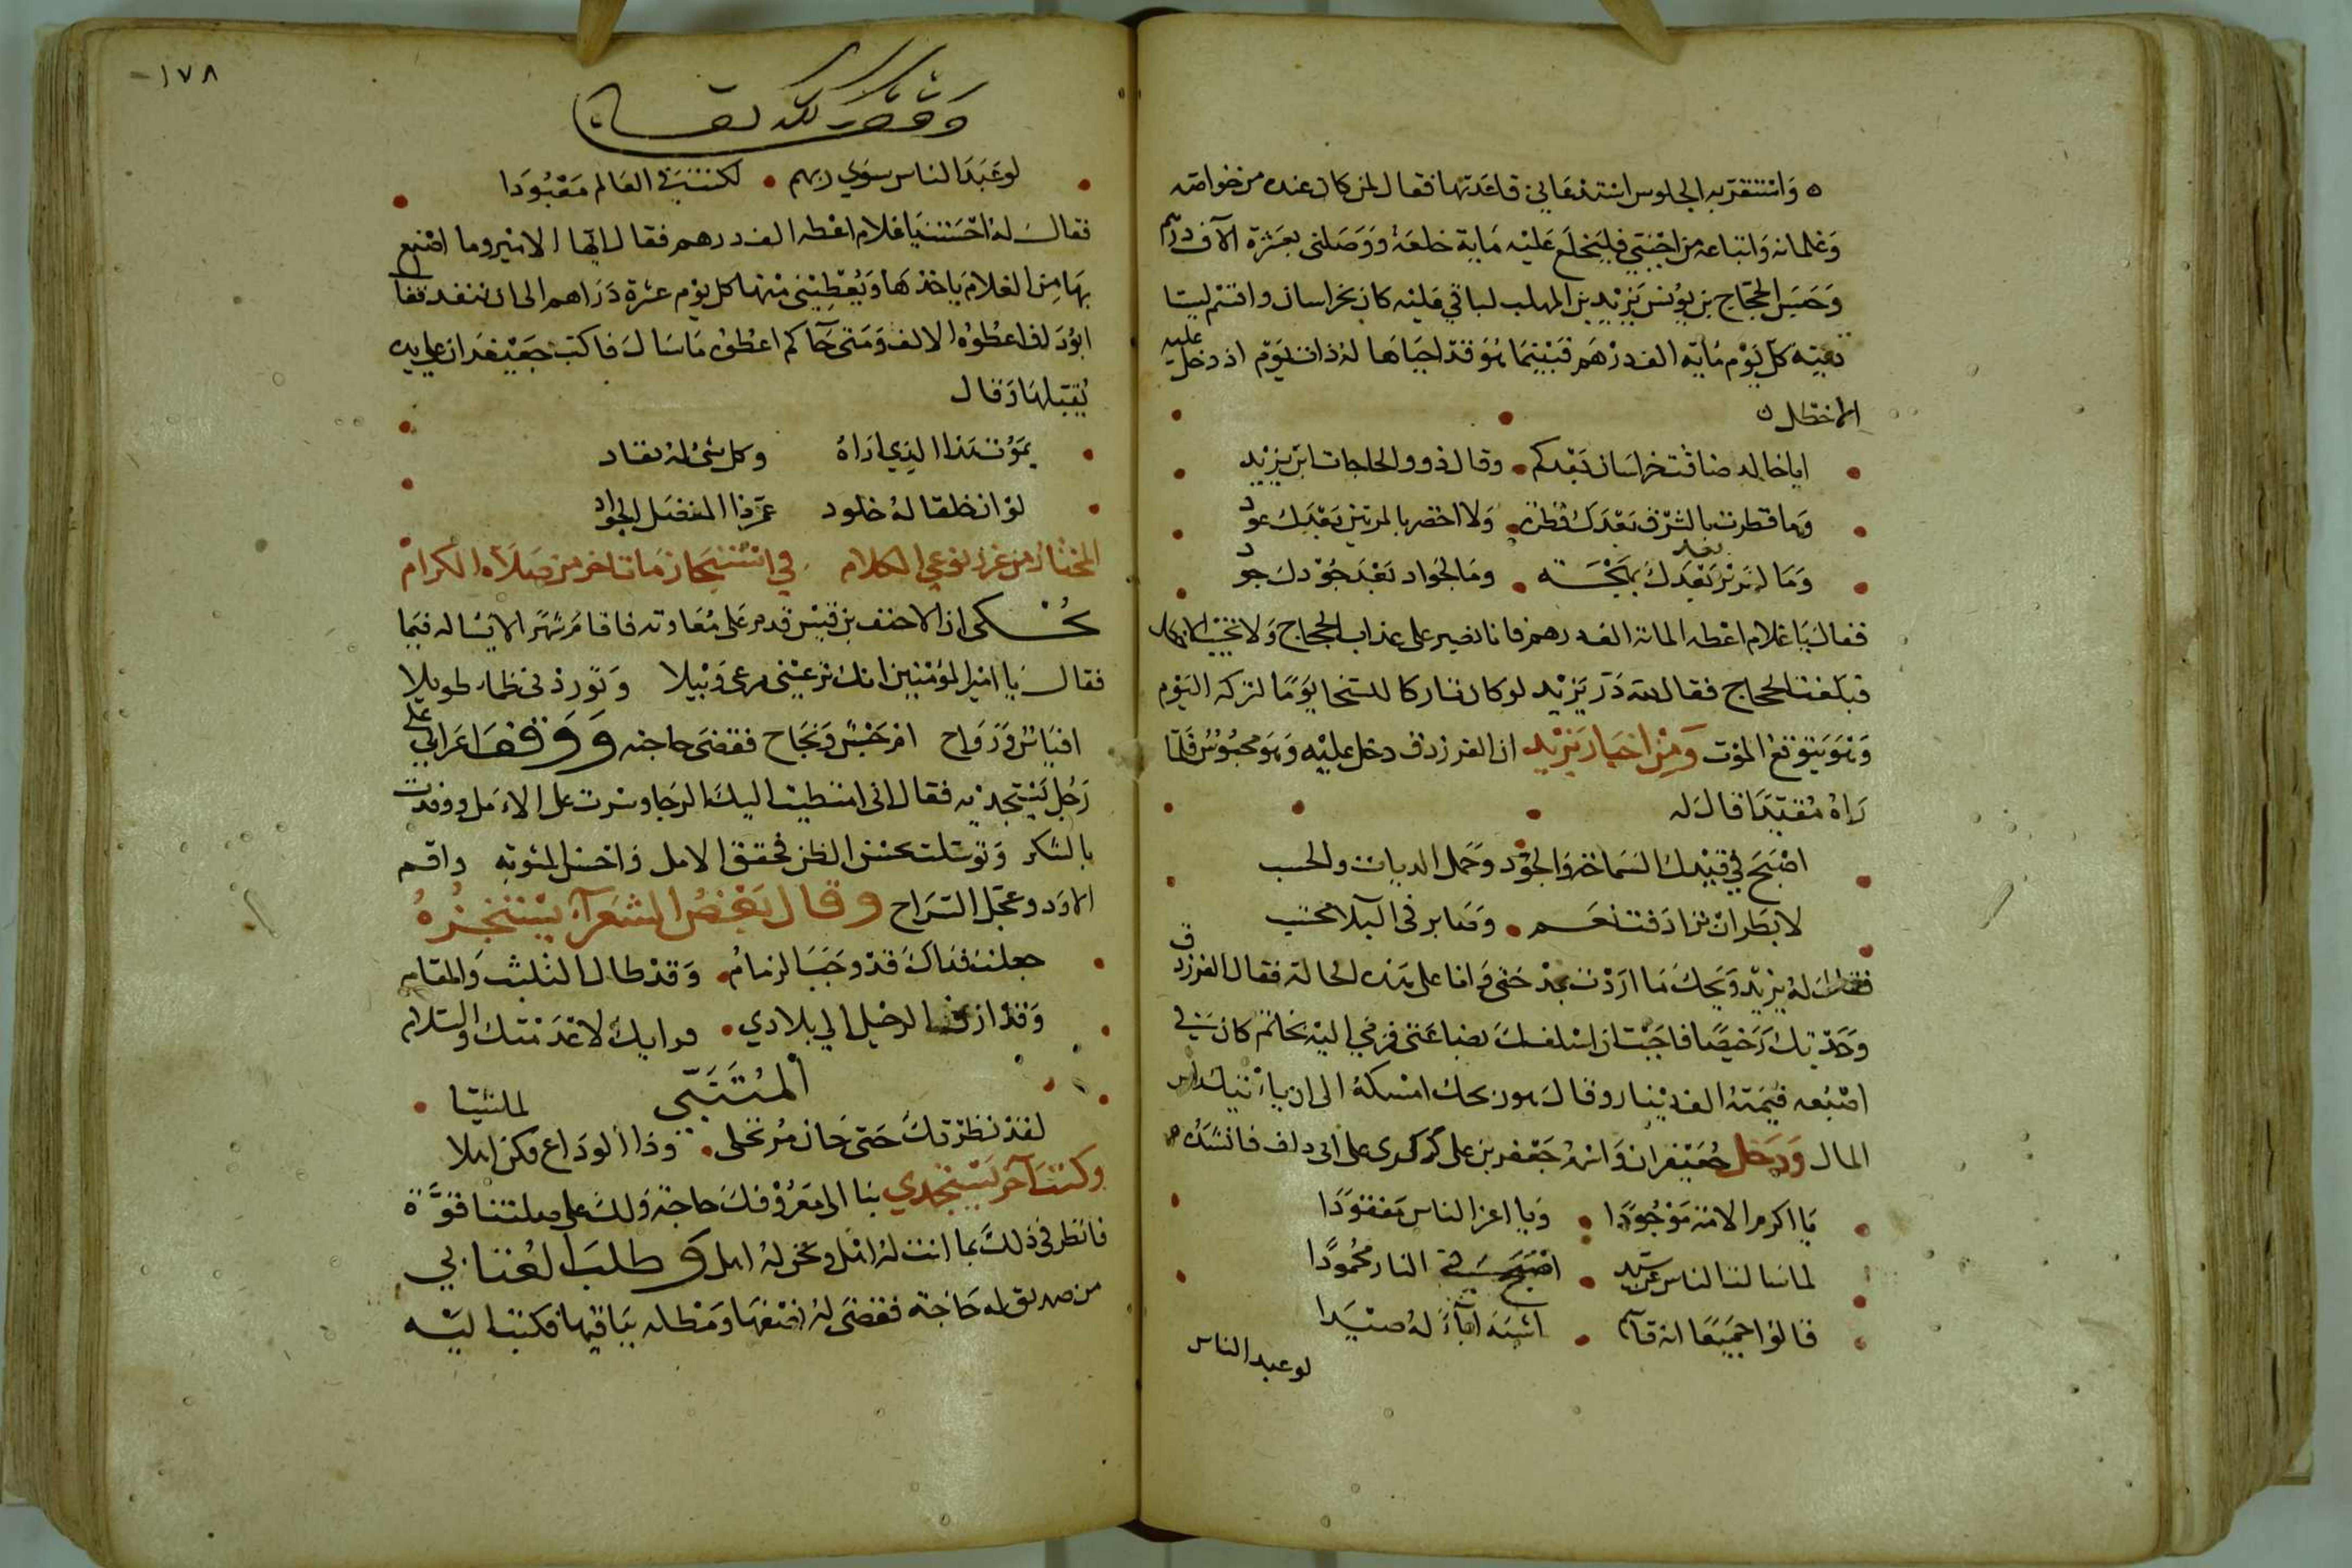 واستقر به الجلوس استدعاني قاعدتها فقال لمن كان عنده من خواصه
وغلمانه واتباعه من احبني فليخلع عليه فخلع عليه ماية خلعة ووصلني بعشرة الآف درهم
وحبس الحجاج بن يوسف يزيد بن المهلب لباقي عليه كان بخراسان واقسم ليستا
دينه كل يوم مايه الف درهم فبينما هو قد اجباها له ذات يوم اذ دخل عليه
الاخطل
ابا خالد ضاقت خراسان بعدكم وقال ذوو الحاجات اين يزيد
وما قطرت بالشرق بعدك قطرة ولا اخضر بالمروين بعدك عود
وما لسرير بعدك بهجة وما لجواد بعد جودك جود
فقال يا غلام اعطه الماية الف درهم فانا نصبر على عذاب الحجاج ولا نخيب الاخطل
فبلغت الحجاج فقال لله در يزيد لو كان تاركا للسخا يوما لتركه اليوم
وهو يتوقع الموت ومن اخبار يزيد ان الفرزدق دخل عليه وهو محبوس فلما
راه مقيدا قال له
اصبح في قيدك السماحة والجود وحمل الديات والحسب
لا بطر ان ترادفت نعم وصابر في البلا محتسب
فقال له يزيد ويحك ما اردت بمدحتي وانا على هذه الحالة فقال الفرزدق
وجدتك رخيصا فاحببت ان اسلفك بضاعتي فرمى اليه بخاتم كان في
اصبعه قيمته الف دينار وقال هو ربحك امسكه الى ان ياتيك راس
المال ودخل جعيفران واسمه جعفر بن علي كركري على ابي دلف فانشده
يا اكرم الامة موجودا ويا اعز الناس مفقودا
لما سالنا الناس عن سيد اصبح في الناس محمودا
قالوا جميعا انه قاسم اشبه آباء له صيدا
لو عبد الناس
١٧٨
وقف لله تعالى
لو عبد الناس سوى ربهم لكنت في العالم معبودا
فقال له احسنت يا غلام اعطه الف درهم فقال ايها الامير وما اصنع
بها مر الغلام ياخذها ويعطيني منها كل يوم عشرة دراهم الى ان تنفد فقال
ابو دلف اعطوه الالف ومتى جآكم اعطوه ما سال فاكب جعيفران على يده
يقبلها وقال
يموت هذا الذي اراه وكل شئ له نفاد
لو ان خلقا له خلود عمر ذا المفضل الجواد
المختار من غرر نوعي الكلام في استنجاز ما تاخر من صلاة الكرام
حكى ان الاحنف بن قيس قدم على معاوية فاقام شهرا لا يساله فيما
فقال يا امير المؤمنين انك ترعيني مرعى وبيلا وتورد في ظما طويلا
افياس ورواح ام حبس ونجاح فقضى حاجته ووقف اعرابي على
رجل يستجديه فقال اني امتطيت اليك الرجا وسرت على الامل ووفدت
بالشكر وتوسلت بحسن الظن فحقق الامل واحسن المثوبه واقم
الاود وعجل السراح وقال بعض الشعرآء يستنجزه
جعلت فداك قد وجب الزمام وقد طال التلبث والمقام
وقد ازف الرحيل الى بلادي فرايك لا عدمتك والسلام
المتنبي
لقد نظرتك حتى حان مرتحلي وذا الوداع فكن اهلا لما شيتا
وكتب آخر يستجدي بنا الى معروفك حاجة ولك على صلتنا قوة
فانظر في ذلك بما انت له اهل ونحن له اهل وطلب العتابي
من صديق له حاجة فقضى له نصفها ومطله بباقيها فكتب اليه